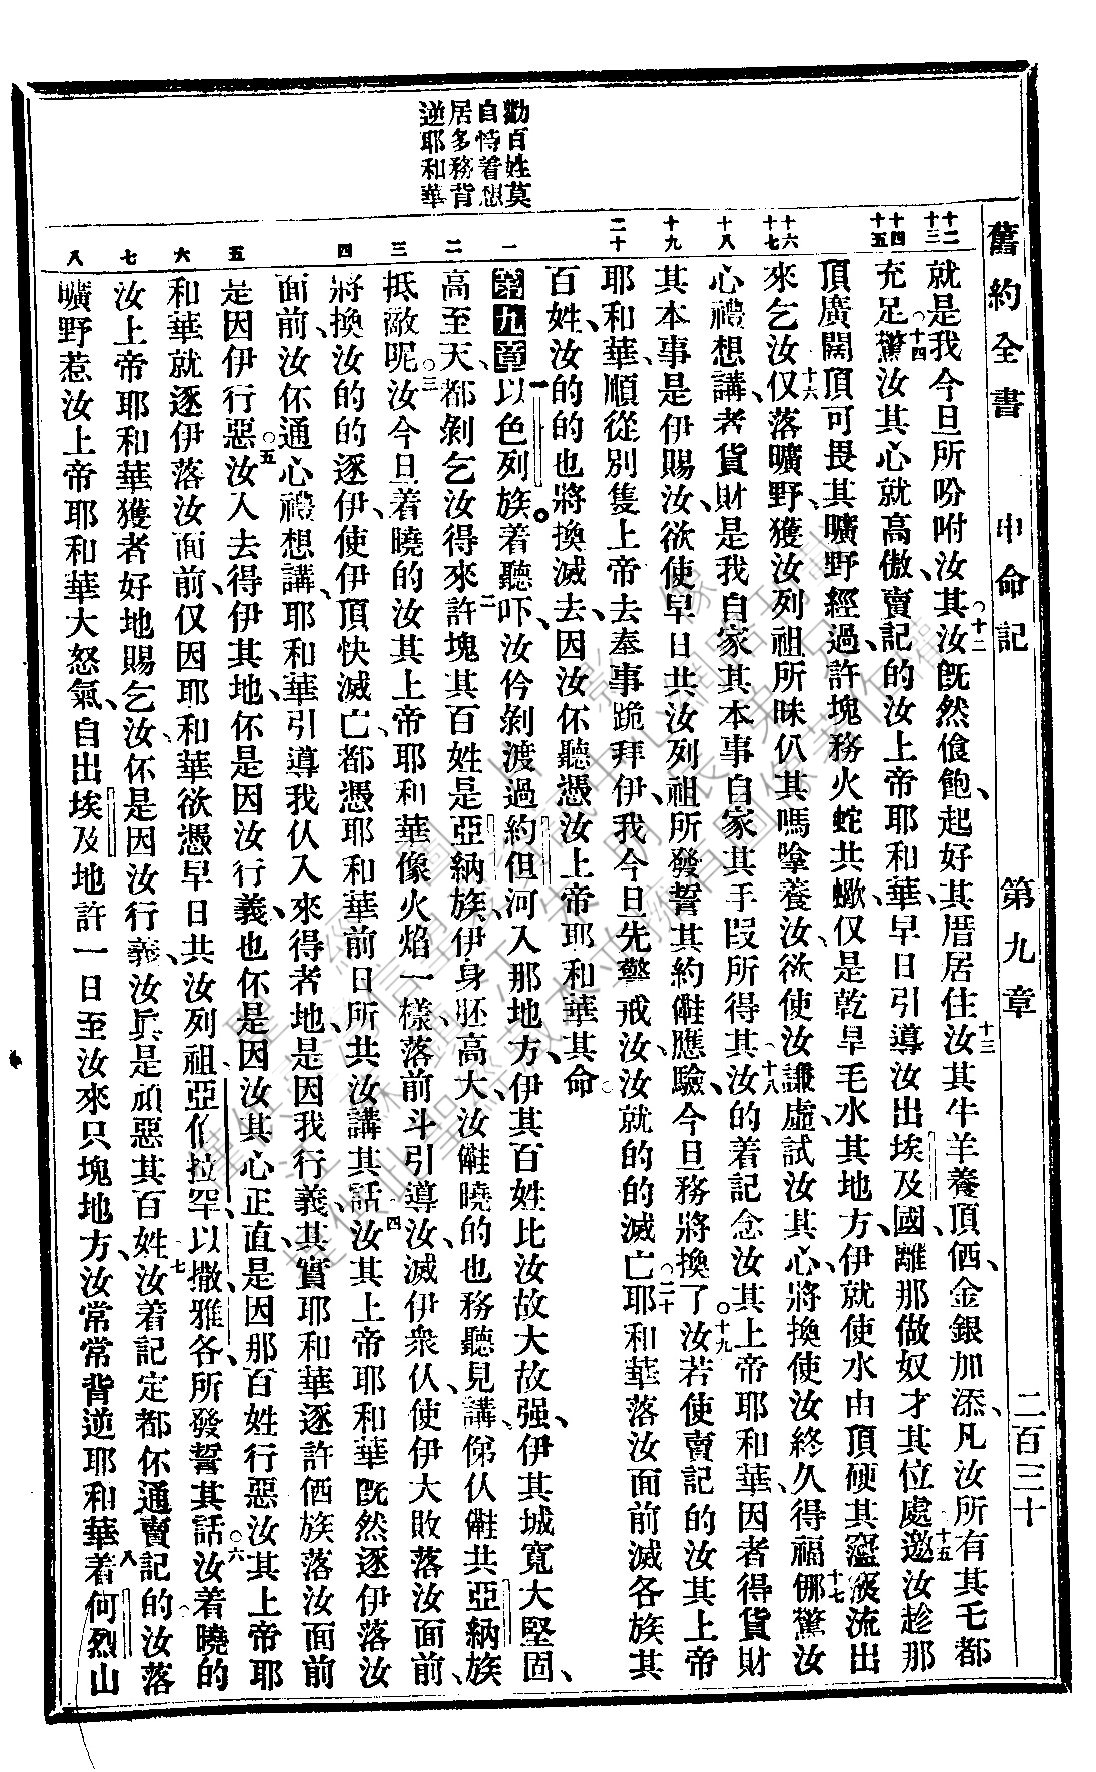 舊約全書 申命記 第九章 二百三十
勸百姓莫
自恃着想
居多務背
逆耶和華
十二 十三
就是我今旦所吩咐汝其○十二汝旣然飽、起好其厝居住十三汝其牛羊養頂価、金銀加添、凡汝所有其乇都
十四 十五
充足○十四驚汝其心就高傲、賣記的汝上帝耶和華、早日引導汝出埃及國、離那做奴才其位處十五邀汝趁那
頂廣闊頂可畏其曠野經過、許塊務火蛇共蠍、仅是乾旱毛水其地方、伊就使水由頂硬其流出
十六 十七
來乞汝十六仅落曠野、獲汝列祖所昧仈其嗎養汝、欲使汝謙虛、試汝其心、將換使汝終久得福十七驚汝
十八
心禮想講、者貨財是我自家其本事自家其手叚所得其十八汝的着記念汝其上帝耶和華、因者得貨財
十九
其本事是伊賜汝、欲使早日共汝列祖所發誓其約應驗、今旦務將換了○十九汝若使賣記的汝其上帝
二十
耶和華、順從別隻上帝、去奉事跪拜伊、我今旦先警戒汝、汝就的的滅亡○二十耶和華落汝面前滅各族其
百姓、汝的的也將換滅去、因汝伓聽憑汝上帝耶和華其命○
一
第九章 一以色列族着聽吓、汝仱剝渡過約但河入那地方、伊其百姓比汝故大故强、伊其城寬大堅固、
二
高至天、都剝乞汝得來二許塊其百姓是亞納族、伊身胚高大、汝曉的也務聽見講、仈共亞納族
三
抵敵呢○三汝今旦着曉的汝其上帝耶和華像火焰一樣、落前斗引導汝、滅伊衆仈、使伊大敗落汝面前、
四
將換汝的的逐伊、使伊頂快滅亡、都憑耶和華前日所共汝講其話四汝其上帝耶和華旣然逐伊落汝
面前、汝伓通心禮想講、耶和華引導我仈入來得者地、是因我行義、其實耶和華逐許価族落汝面前
五
是因伊行惡○五汝入去得伊其地、伓是因汝行義、也伓是因汝其心正直、是因那百姓行惡、汝其上帝耶
六
和華就逐伊落汝面前、仅因耶和華欲憑早日共汝列祖、亞伯拉罕、以撒、雅各、所發誓其話○六汝着曉的
七
汝上帝耶和華獲者好地賜乞汝、伓是因汝行義、汝眞是頑惡其百姓七汝着記定都伓通賣記的汝落
八
曠野惹汝上帝耶和華大怒氣、自出埃及地許一日至汝來只塊地方、汝常常背逆耶和華八着何烈山